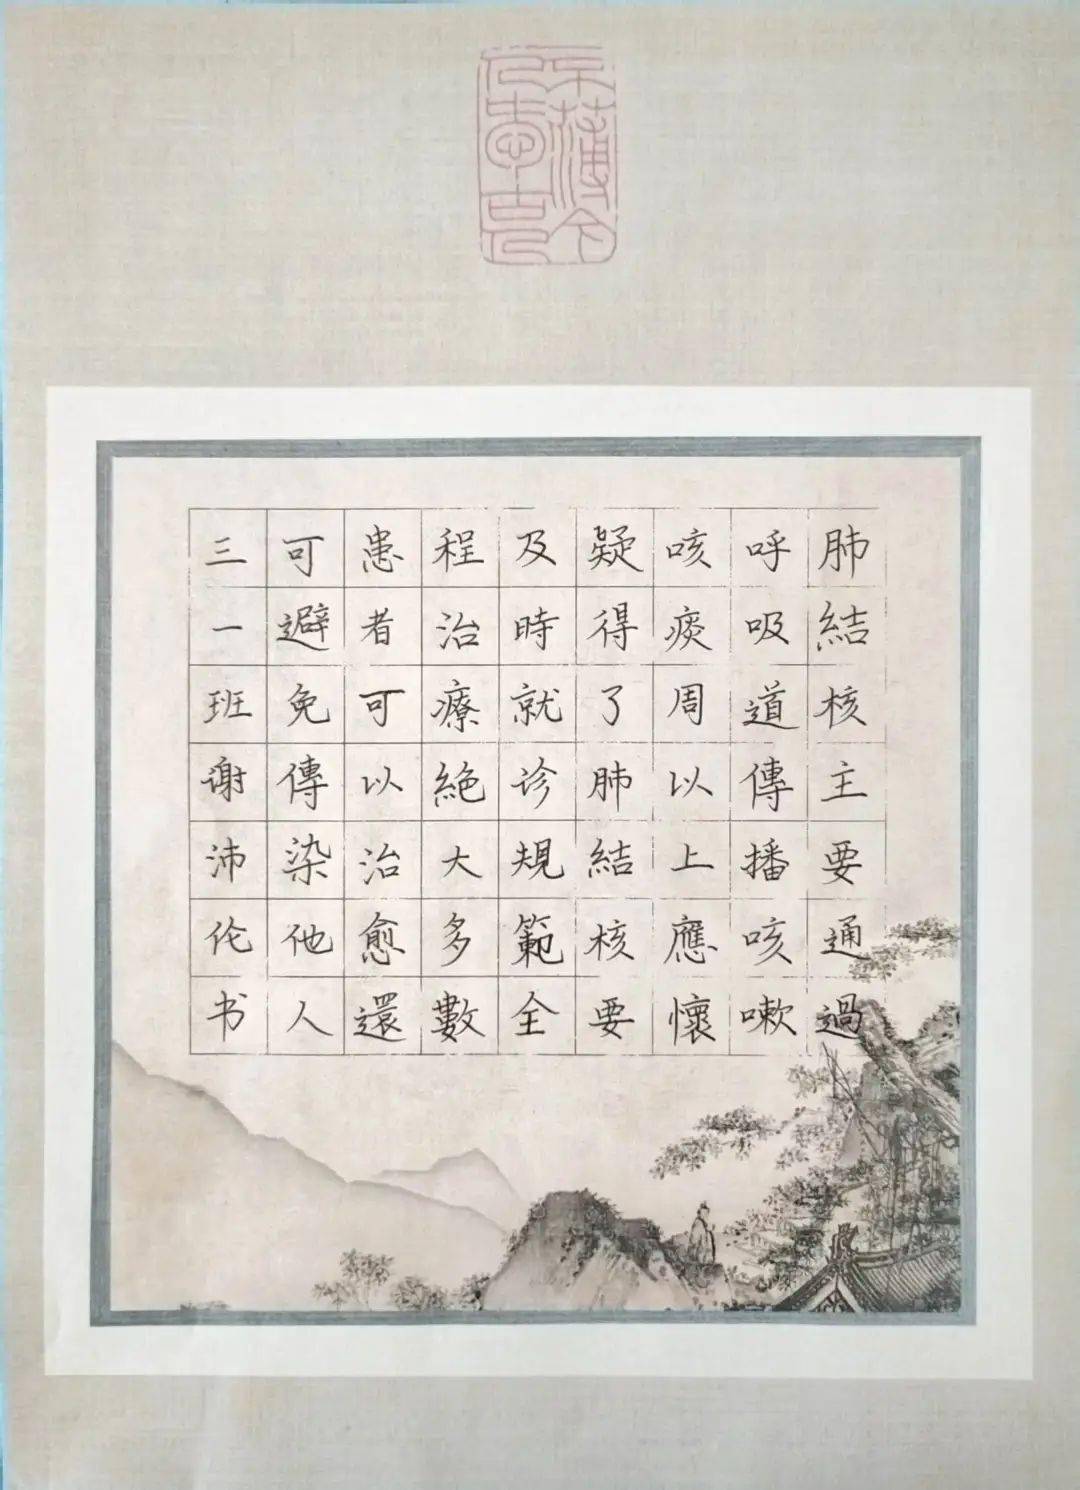 肺結核主要通過
呼吸道傳播咳嗽
咳痰周以上應懷
疑得了肺結核要
及時就诊規範全
程治療絶大多數
患者可以治愈還
可避免傳染他人
三一班谢沛伦书